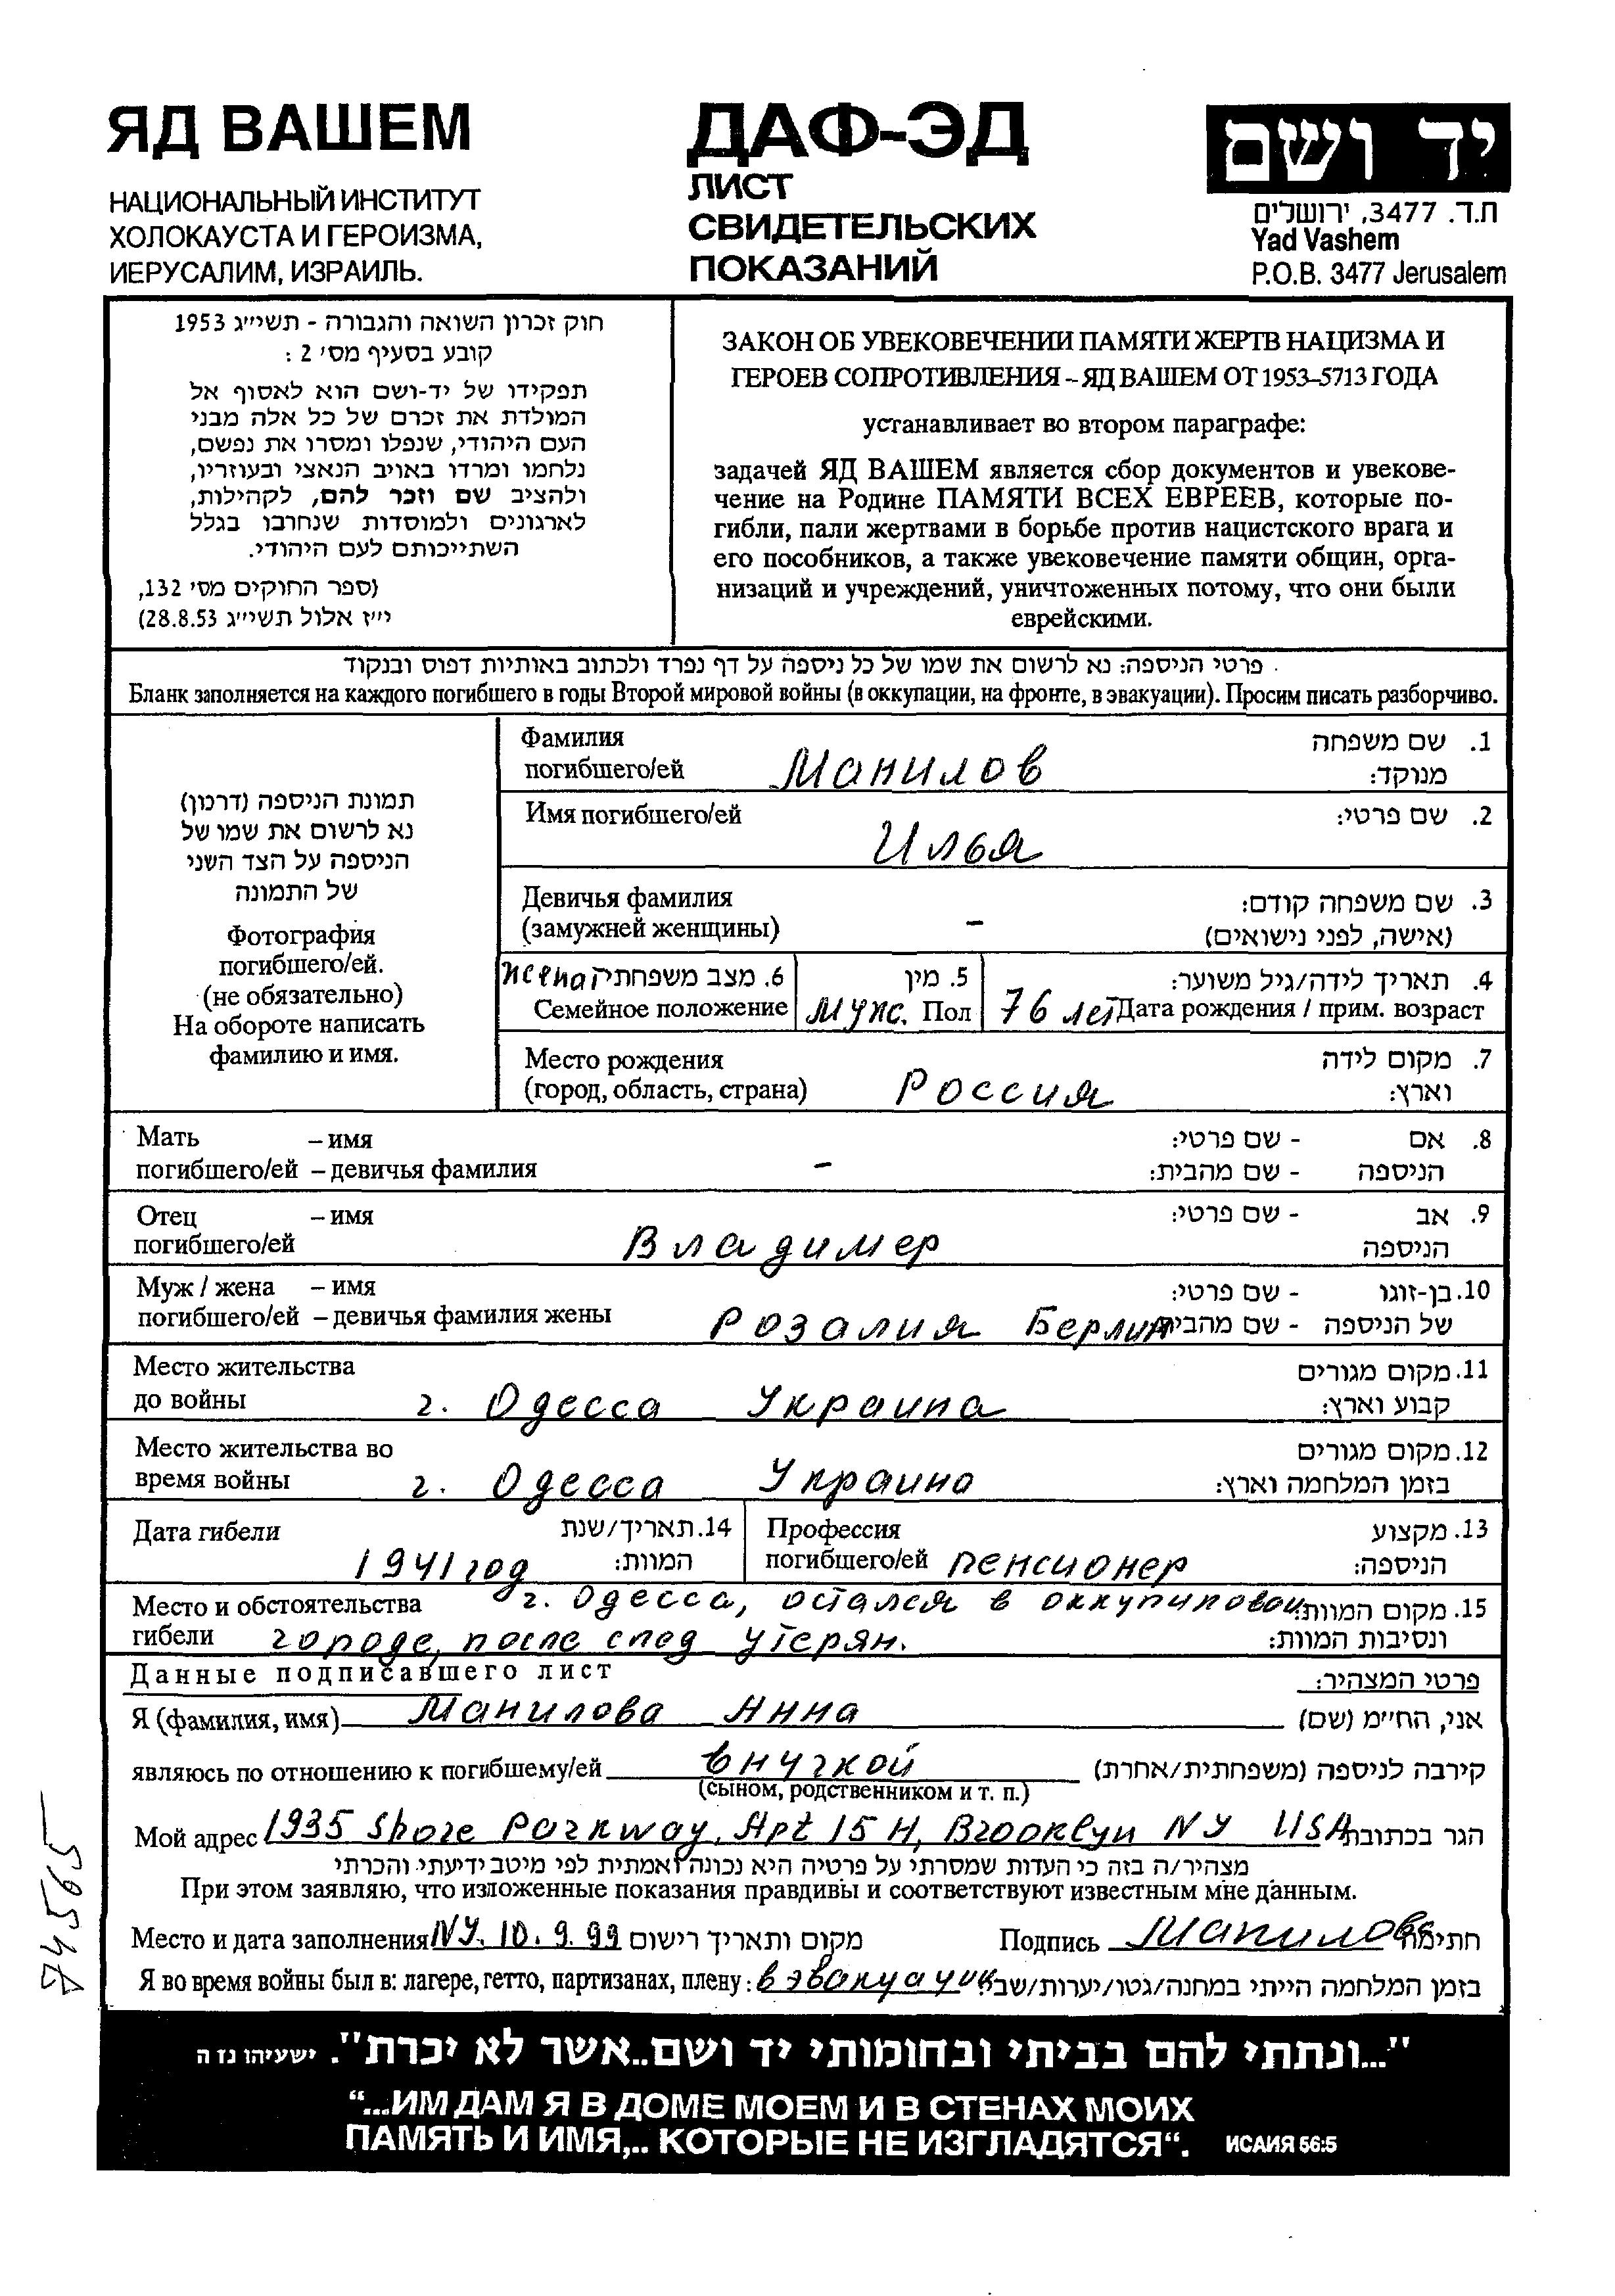 ЯД ВАШЕМ
НАЦИОНАЛЬНЫЙ ИНСТИТУТ
ХОЛОКАУСТА И ГЕРОИЗМА,
ИЕРУСАЛИМ, ИЗРАИЛЬ.
ДАФ-ЭД
ЛИСТ
СВИДЕТЕЛЬСКИХ
ПОКАЗАНИЙ
יד ושם
ת.ד. 3477, ירושלים
Yad Vashem
P.O.B. 3477 Jerusalem
חוק זכרון השואה והגבורה - תשי״ג 1953
קובע בסעיף מס׳ 2 :
תפקידו של יד-ושם הוא לאסוף אל
המולדת את זכרם של כל אלה מבני
העם היהודי, שנפלו ומסרו את נפשם,
נלחמו ומרדו באויב הנאצי ובעוזריו,
ולהציב שם וזכר להם, לקהילות,
לארגונים ולמוסדות שנחרבו בגלל
השתייכותם לעם היהודי.
(ספר החוקים מס׳ 132,
י״ז אלול תשי״ג 28.8.53)
ЗАКОН ОБ УВЕКОВЕЧЕНИИ ПАМЯТИ ЖЕРТВ НАЦИЗМА И
ГЕРОЕВ СОПРОТИВЛЕНИЯ – ЯД ВАШЕМ ОТ 1953–5713 ГОДА
устанавливает во втором параграфе:
задачей ЯД ВАШЕМ является сбор документов и увекове-
чение на Родине ПАМЯТИ ВСЕХ ЕВРЕЕВ, которые по-
гибли, пали жертвами в борьбе против нацистского врага и
его пособников, а также увековечение памяти общин, орга-
низаций и учреждений, уничтоженных потому, что они были
еврейскими.
פרטי הניספה: נא לרשום את שמו של כל ניספה על דף נפרד ולכתוב באותיות דפוס ובנקוד
Бланк заполняется на каждого погибшего в годы Второй мировой войны (в оккупации, на фронте, в эвакуации). Просим писать разборчиво.
תמונת הניספה (דרכון)
נא לרשום את שמו של
הניספה על הצד השני
של התמונה
Фотография
погибшего/ей.
(не обязательно)
На обороте написать
фамилию и имя.
Фамилия 1. שם משפחה
погибшего/ей Манилов מנוקד:
Имя погибшего/ей 2. שם פרטי:
Илья
Девичья фамилия 3. שם משפחה קודם:
(замужней женщины) - (אישה, לפני נישואים)
жена 6. מצב משפחתי 5. מין 4. תאריך לידה/גיל משוער:
Семейное положение муж. Пол 76 лет Дата рождения / прим. возраст
Место рождения 7. מקום לידה
(город, область, страна) Россия וארץ:
Мать – имя 8. אם - שם פרטי:
погибшего/ей – девичья фамилия - הניספה - שם מהבית:
Отец – имя 9. אב - שם פרטי:
погибшего/ей Владимер הניספה
Муж / жена – имя 10. בן-זוגו - שם פרטי:
погибшего/ей – девичья фамилия жены Розалия Берлин של הניספה - שם מהבית
Место жительства 11. מקום מגורים
до войны г. Одесса Украина קבוע וארץ:
Место жительства во 12. מקום מגורים
время войны г. Одесса Украина בזמן המלחמה וארץ:
Дата гибели 14. תאריך/שנת
1941 год המוות:
Профессия 13. מקצוע
погибшего/ей пенсионер הניספה:
Место и обстоятельства г. Одесса, остался в оккупиповон 15. מקום המוות
гибели городе, после след утерян. ונסיבות המוות:
Данные подписавшего лист פרטי המצהיר:
Я (фамилия, имя) Манилова Анна אני, הח״מ (שם)
являюсь по отношению к погибшему/ей внучкой קירבה לניספה (משפחתית/אחרת)
(сыном, родственником и т. п.)
Мой адрес 1935 Shore Parkway, Apt 15 H, Brooklyn NY USA הגר בכתובת
מצהיר/ה בזה כי העדות שמסרתי על פרטיה היא נכונה ואמתית לפי מיטב ידיעתי והכרתי
При этом заявляю, что изложенные показания правдивы и соответствуют известным мне данным.
Место и дата заполнения NY. 10.9.99 מקום ותאריך רישום Подпись Манилова חתימה
Я во время войны был в: лагере, гетто, партизанах, плену: в эвакуации בזמן המלחמה הייתי במחנה/גטו/יערות/שבי
"...ונתתי להם בביתי ובחומותי יד ושם..אשר לא יכרת". ישעיהו נז ה
“...ИМ ДАМ Я В ДОМЕ МОЕМ И В СТЕНАХ МОИХ
ПАМЯТЬ И ИМЯ,.. КОТОРЫЕ НЕ ИЗГЛАДЯТСЯ“. ИСАИЯ 56:5